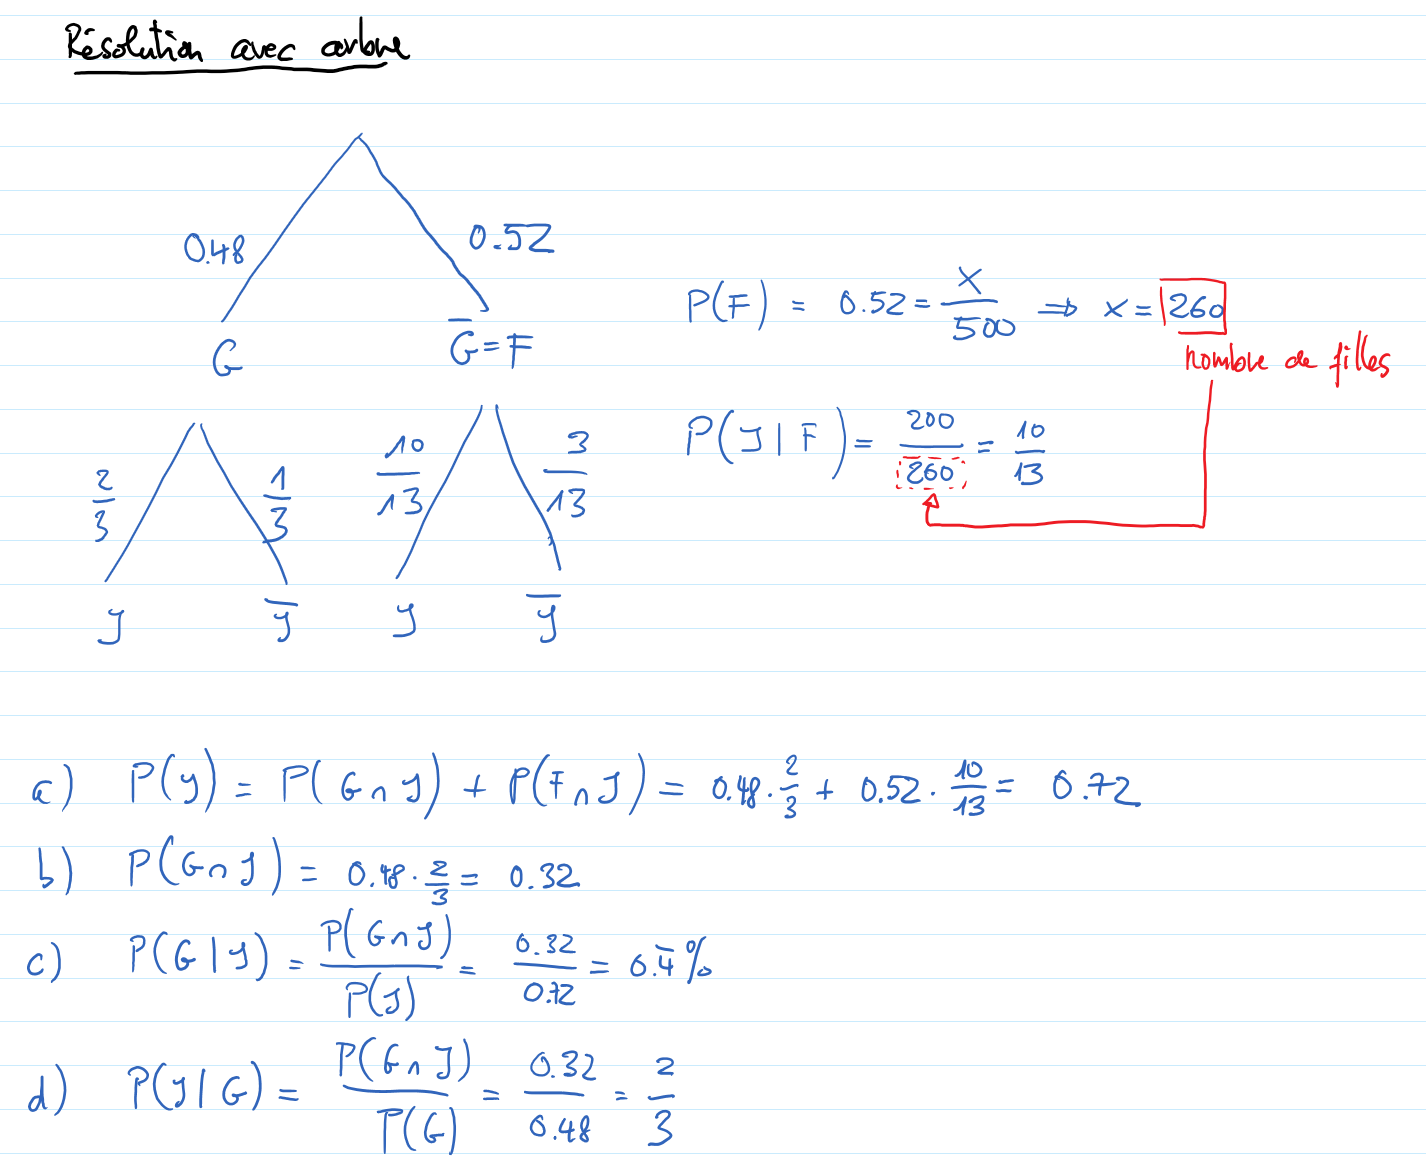 Résolution avec arbre
0.48
0.52
G
G̅ = F
P(F) = 0.52 = x/500 ⇒ x = 260
nombre de filles
P(J | F) = 200/260 = 10/13
2/3
1/3
10/13
3/13
J
J̅
J
J̅
a) P(J) = P(G ∩ J) + P(F ∩ J) = 0.48 · 2/3 + 0.52 · 10/13 = 0.72
b) P(G ∩ J) = 0.48 · 2/3 = 0.32
c) P(G | J) = P(G ∩ J)/P(J) = 0.32/0.72 = 0.4̅ %
d) P(J | G) = P(G ∩ J)/P(G) = 0.32/0.48 = 2/3